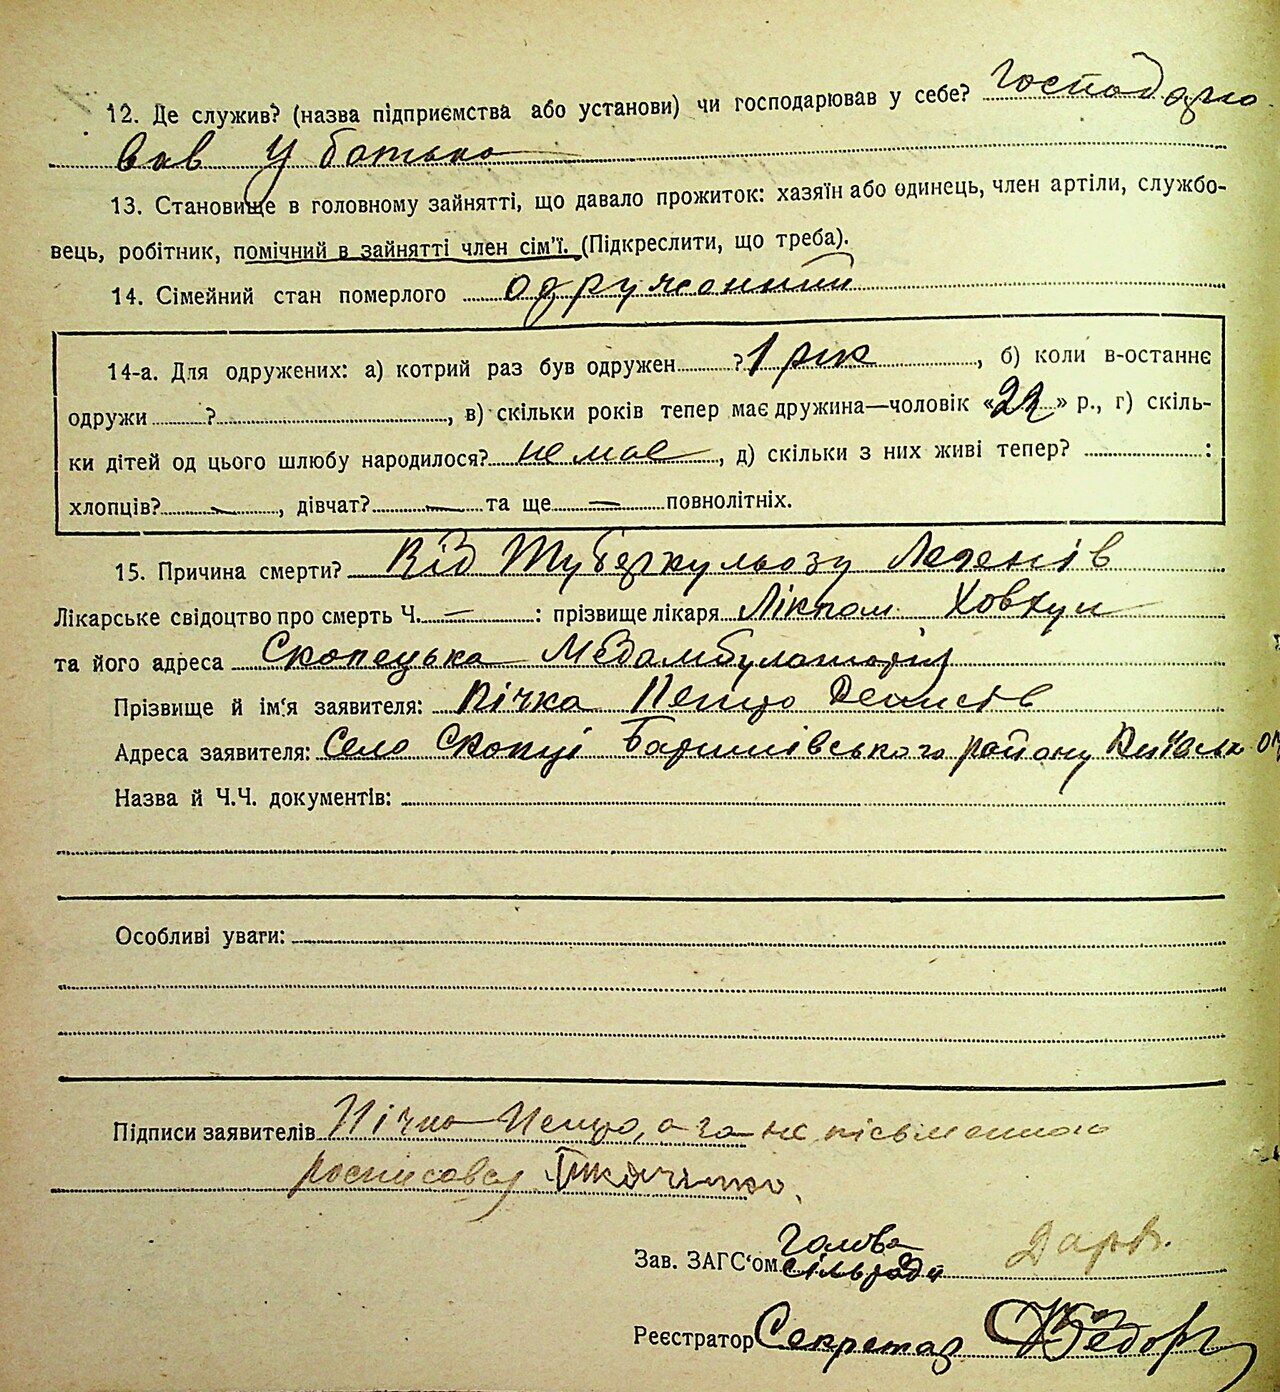 12. Де служив? (назва підприємства або установи) чи господарював у себе? Господарю
вав у батька
13. Становище в головному зайнятті, що давало прожиток: хазяїн або одинець, член артіли, службо-
вець, робітник, помічний в зайнятті член сім'ї. (Підкреслити, що треба).
14. Сімейний стан померлого одружений
14-а. Для одружених: а) котрий раз був одружен ? 1 рік, б) коли в-останнє
одружи ? , в) скільки років тепер має дружина—чоловік «22» р., г) скіль-
ки дітей од цього шлюбу народилося? не має, д) скільки з них живі тепер? :
хлопців? —, дівчат? — та ще — повнолітніх.
15. Причина смерти? Від Туберкульозу Легенів
Лікарське свідоцтво про смерть Ч. — : прізвище лікаря Лікпом Ховкун
та його адреса Скопецька Медамбулаторія
Прізвище й ім'я заявителя: Вічка Петро Денисів
Адреса заявителя: Село Скопці Баришівського району Київськ
Назва й Ч.Ч. документів:
Особливі уваги:
Підписи заявителів Вічка Петро, а за не письменного
росписався Ткаченко
Зав. ЗАГС'ом Голова
сільради
Реєстратор Секретар